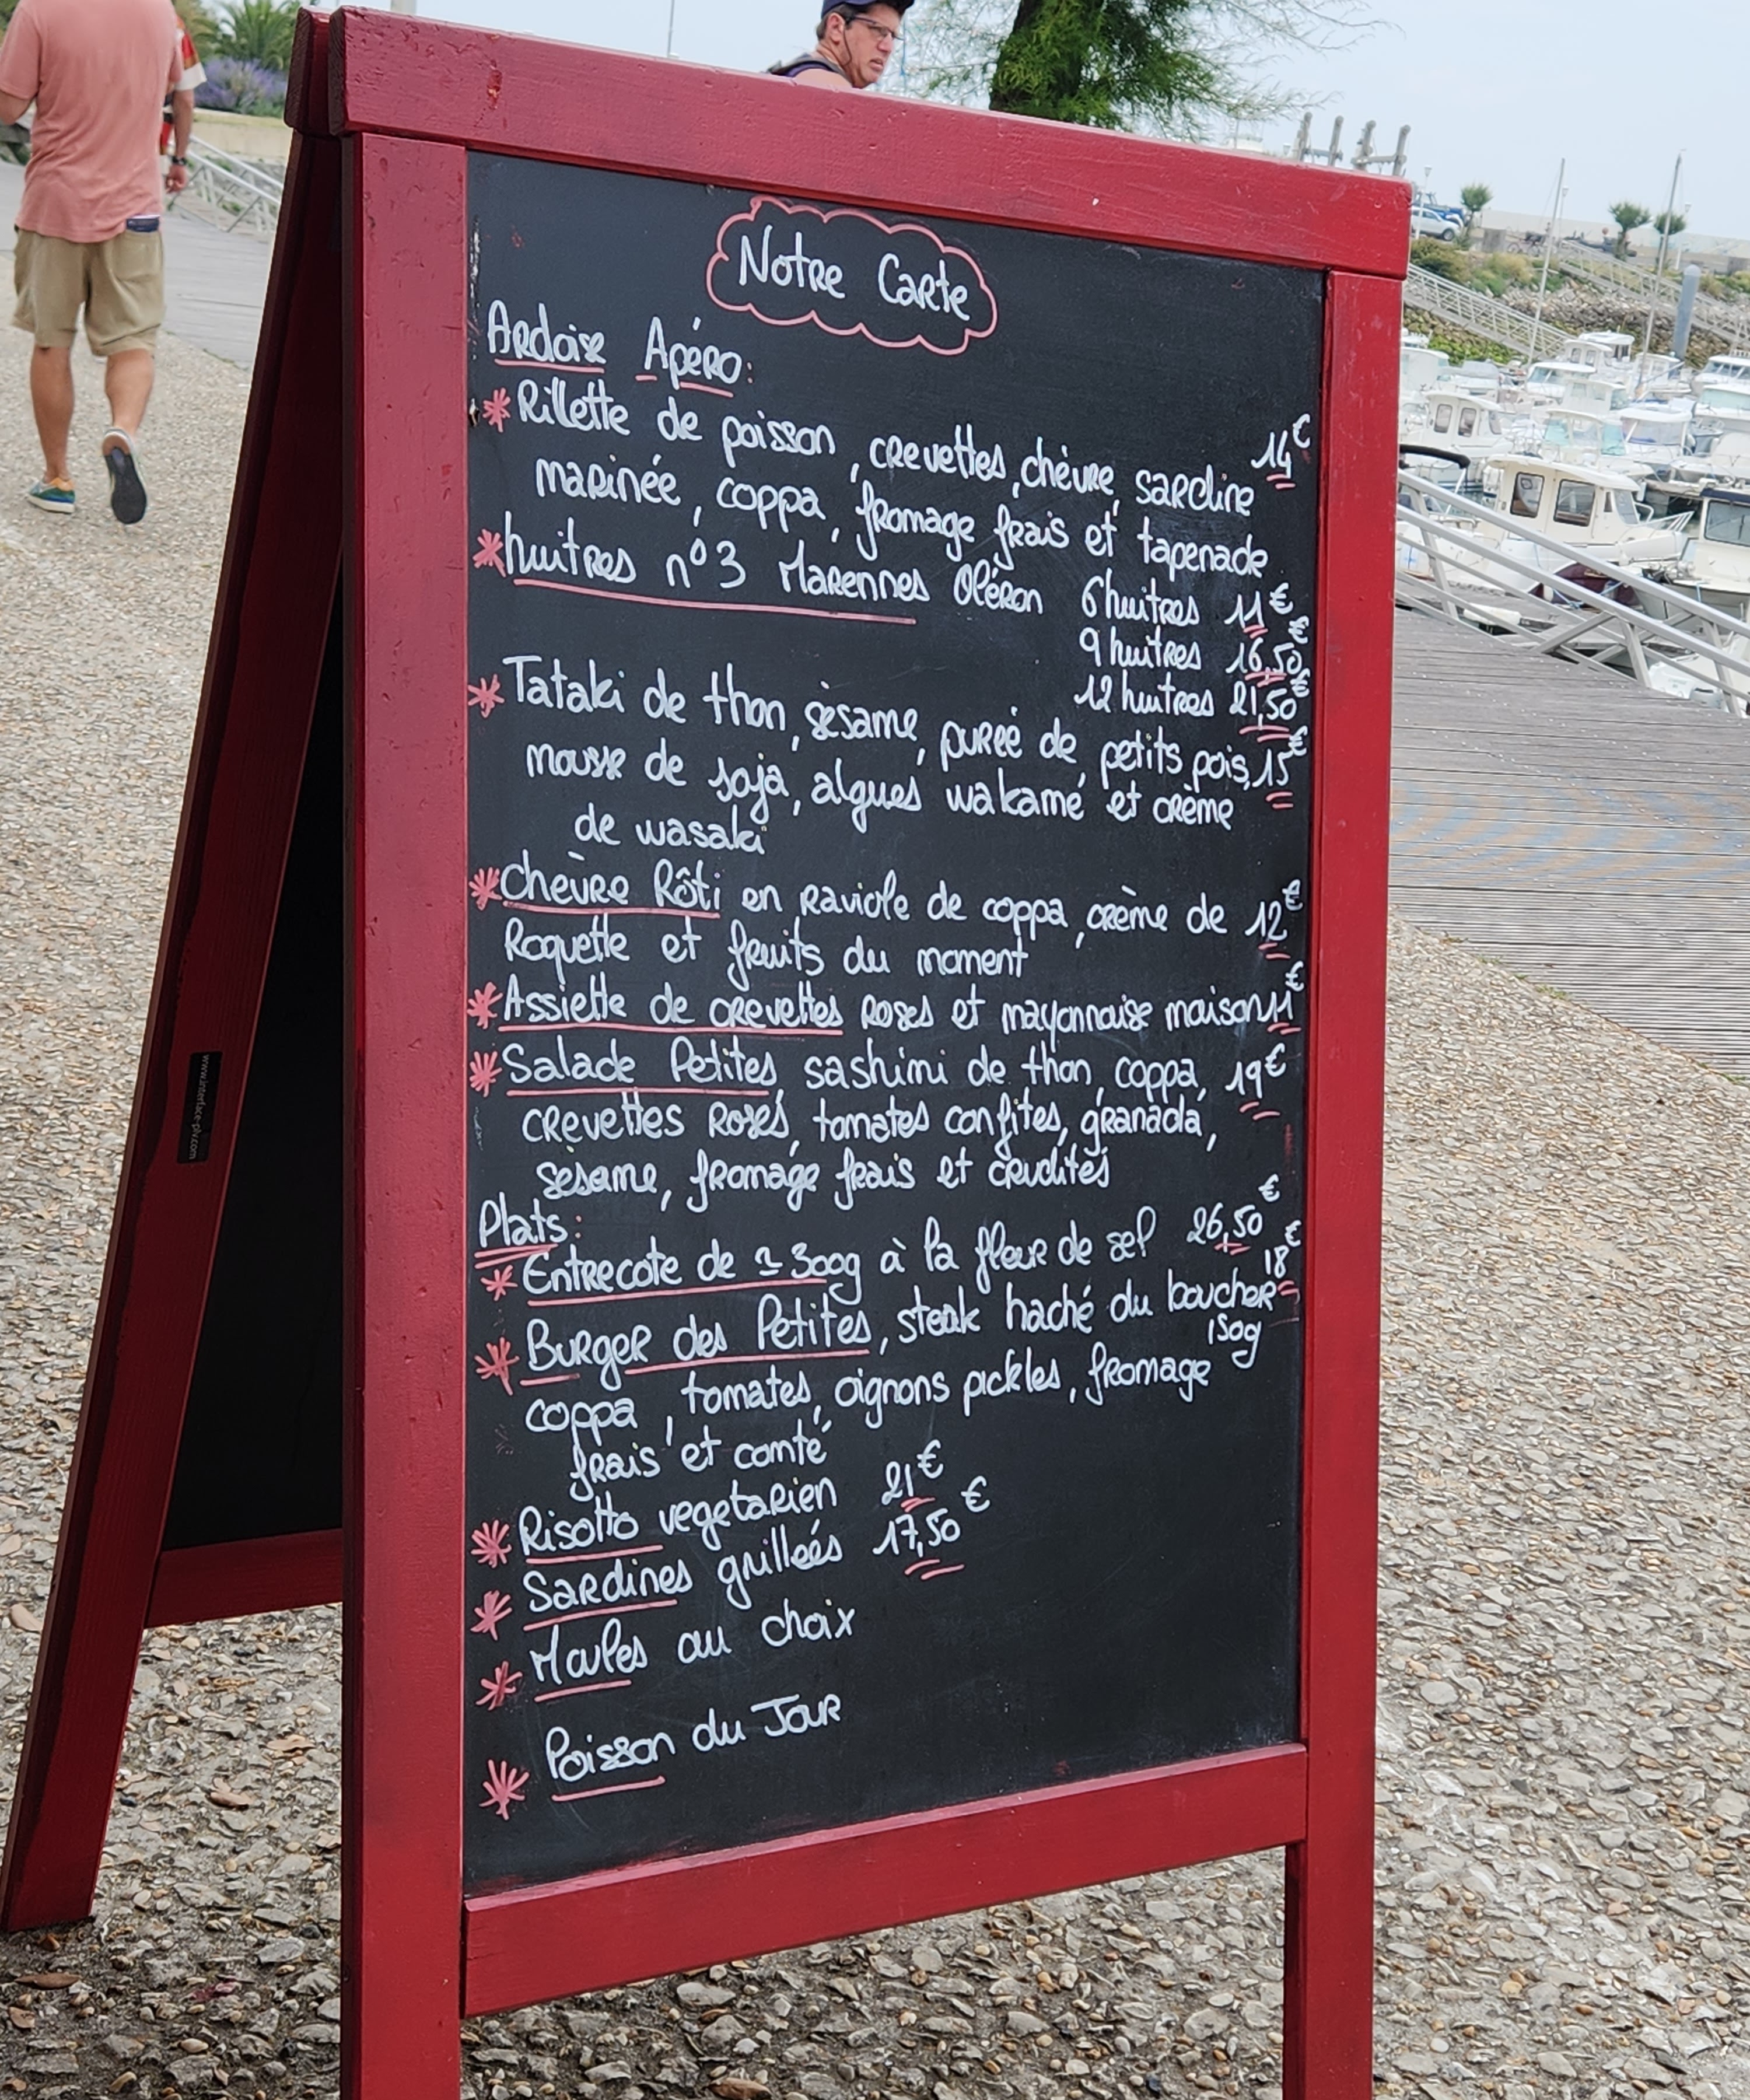 Notre Carte
Ardoise Apéro:
* Rillette de poisson, crevettes, chèvre, sardine 14€
marinée, coppa, fromage frais et tapenade
* huitres n°3 Marennes Oléron 6 huitres 11€
9 huitres 16,50€
12 huitres 21,50€
* Tataki de thon, sèsame, purée de petits pois, 15€
mousse de soja, algues wakamé et crème
de wasaki
* Chèvre Rôti en raviole de coppa, crème de 12€
Roquette et fruits du moment
* Assiette de crevettes roses et mayonnaise maison 11€
* Salade Petites, sashimi de thon, coppa, 19€
crevettes roses, tomates confites, granada,
sèsame, fromage frais et crudités
Plats:
* Entrecote de ± 300g à la fleur de sel 26,50€
* Burger des Petites, steak haché du boucher 18€
150g
coppa, tomates, oignons pickles, fromage
frais et comté
* Risotto vegetarien 21€
* Sardines grilleés 17,50€
* Moules au choix
* Poisson du Jour
www.interface-plv.com